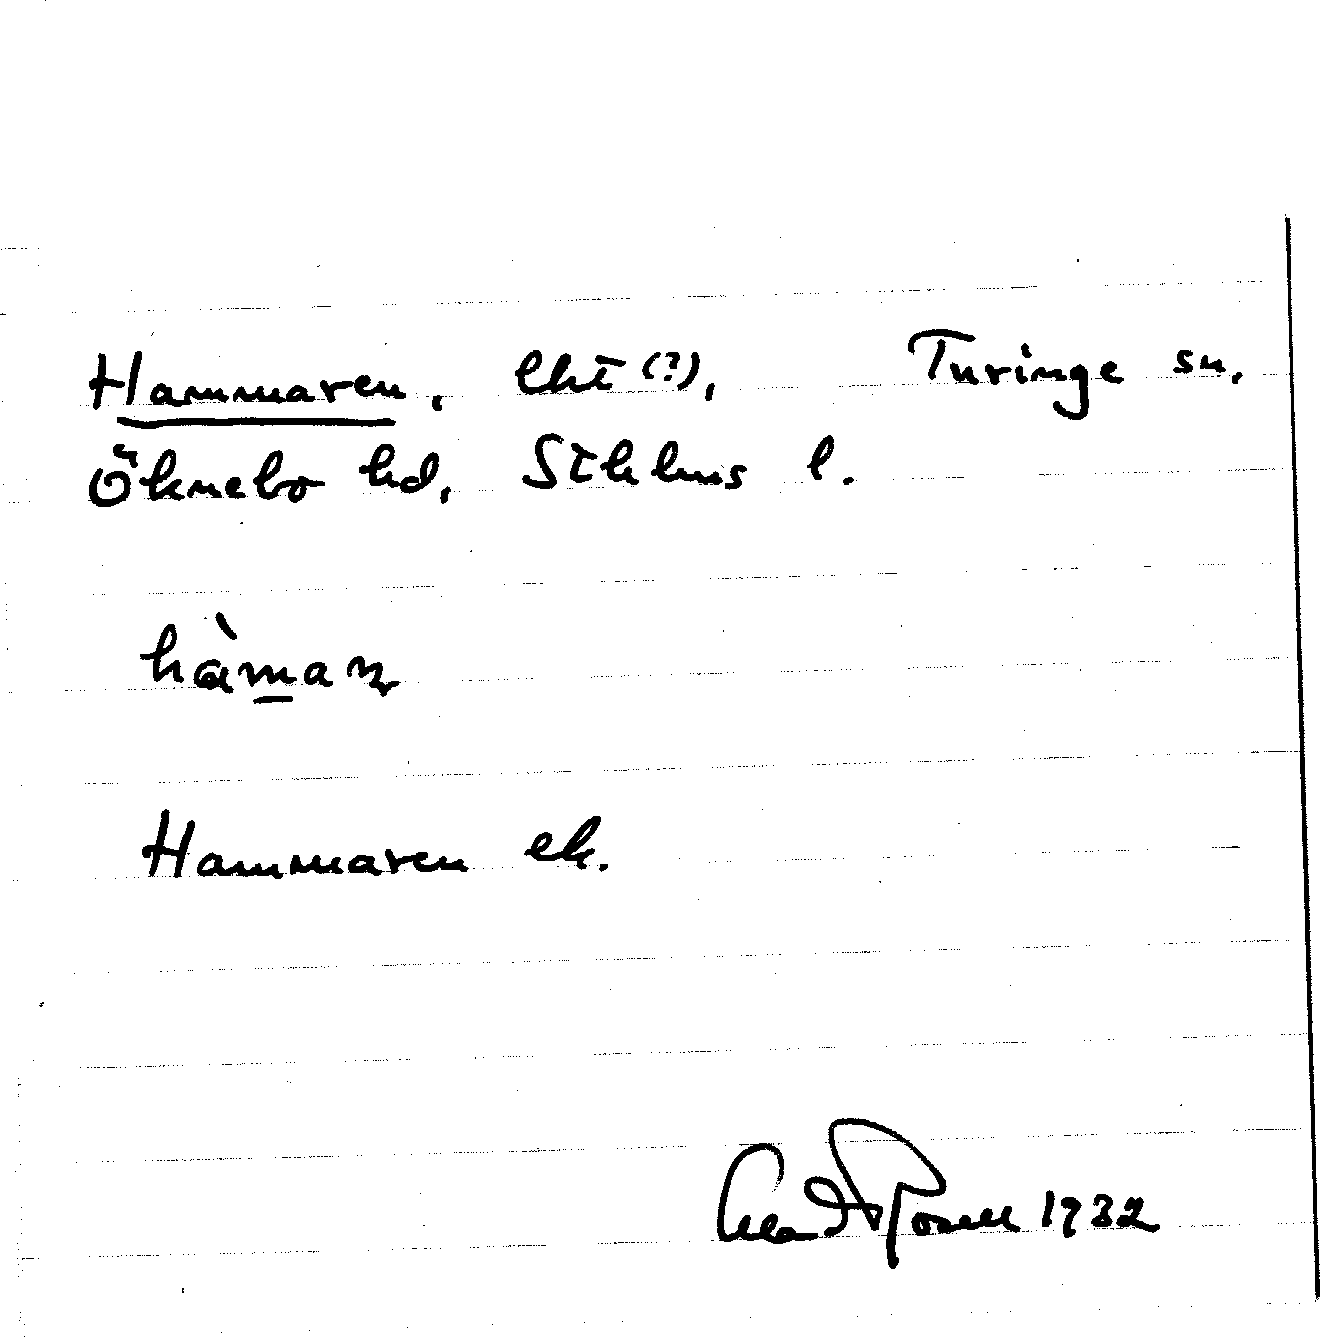 Hammaren, lht (?), Turinge sn,
Öknebo hd, Sthlms l.
hàman
Hammaren ek.
1932